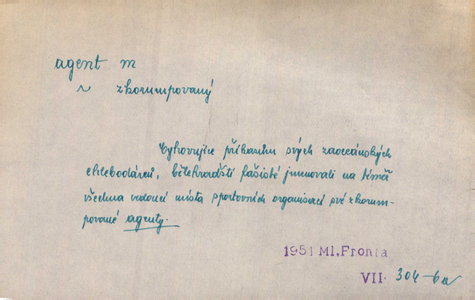 agent m
~ zkorumpovaný
Vyhovujíce příkazům svých zaoceánských
chlebodárců, bělehradští fašisté jmenovali na téměř
všechna vedoucí místa sportovních organisací své zkorum-
pované agenty.
1951 Ml. Fronta
VII. 304-6a